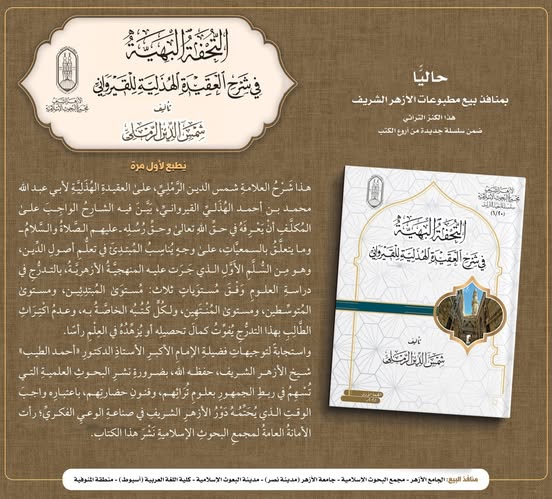 التُّحْفَةُ البَهِيَّةُ
في شَرْحِ العَقِيْدَةِ الهُذَلِيَّةِ لِلْقَيْرَوَانِيِّ
تأليف
شمس الدين الرملي
الأزهر الشريف
مجمع البحوث الإسلامية
حاليًّا
بمنافذ بيع مطبوعات الأزهر الشريف
هذا الكنز التراثي
ضمن سلسلة جديدة من أروع الكتب
يطبع لأول مرة
هذا شَرْحُ العلامةِ شمسِ الدين الرَّمْلِيِّ، على العقيدةِ الهُذَليَّةِ لأبي عبد الله
محمد بن أحمد الهُذَليِّ القيروانيِّ، بَيَّنَ فيه الشارحُ الواجبَ على
المكلَّفِ أنْ يَعْرِفَهُ في حقِّ اللهِ تعالى وحقِّ رُسُلِه -عليهم الصَّلاةُ والسَّلامُ-
وما يتعلَّقُ بالسمعيَّاتِ، على وجهٍ يُناسبُ المبتدِئَ في تعلُّمِ أصولِ الدِّينِ،
وهو مِنَ السُّلَّمِ الأوَّلِ الذي جَرَتْ عليه المنهجيَّةُ الأزهريَّةُ، بالتدرُّجِ في
دراسةِ العلومِ وَفْقَ مستوَيَاتٍ ثلاث: مُستوَى المُبتدِئِينَ، ومستوى
المُتوسِّطِينَ، ومستوى المُنْتَهِينَ، ولكلٍّ كُتُبُه الخاصَّةُ به، وعدمُ اكْتِرَاثِ
الطَّالِبِ بهذا التدرُّجِ يُفَوِّتُ كمالَ تحصيلِه أو يُزهِّدُهُ في العِلْمِ رأسًا.
واستجابةً لتوجيهاتِ فضيلةِ الإمامِ الأكبرِ الأستاذِ الدكتورِ «أحمد الطيب»
شيخِ الأزهرِ الشريفِ، حفظه الله، بضرورةِ نشرِ البحوثِ العلميةِ التي
تُسْهِمُ في ربطِ الجمهورِ بعلومِ تُراثِهم، وفنونِ حضارتِهم، باعتبارِه واجبَ
الوقتِ الذي يُحَتِّمُهُ دَوْرُ الأزهرِ الشريفِ في صناعةِ الوعي الفكريِّ؛ رأت
الأمانةُ العامةُ لمجمعِ البحوثِ الإسلاميةِ نَشْرَ هذا الكتاب.
الأزهر الشريف
مجمع البحوث الإسلامية
التُّحْفَةُ البَهِيَّةُ
في شَرْحِ العَقِيْدَةِ الهُذَلِيَّةِ لِلْقَيْرَوَانِيِّ
تأليف
شمس الدين الرملي
منافذ البيع: الجامع الأزهر - مجمع البحوث الإسلامية - جامعة الأزهر (مدينة نصر) - مدينة البعوث الإسلامية - كلية اللغة العربية (أسيوط) - منطقة المنوفية